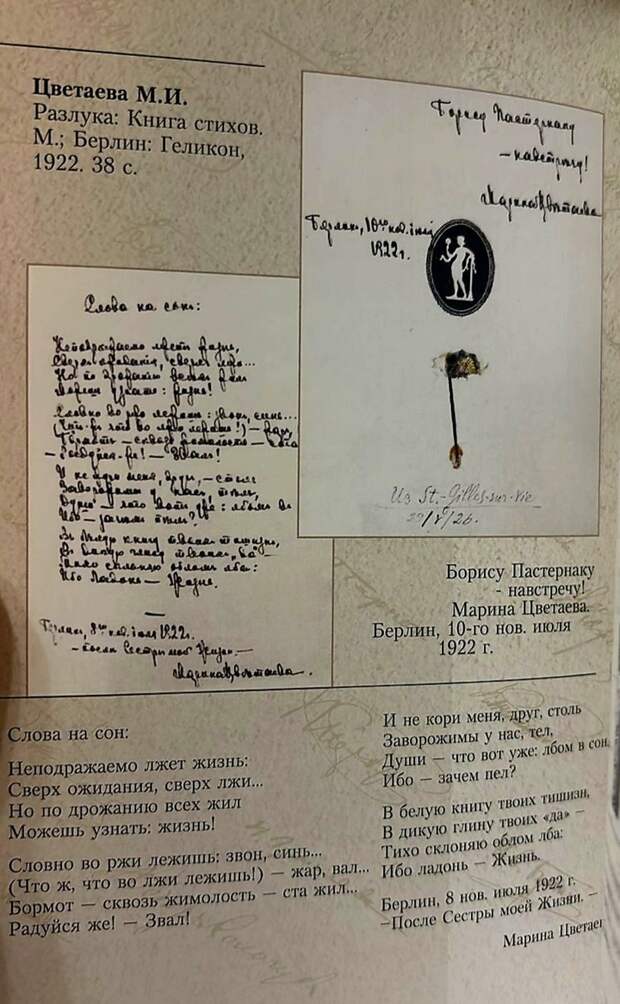 Цветаева М.И.
Разлука: Книга стихов.
М.; Берлин: Геликон,
1922. 38 с.
Борису Пастернаку
– навстречу!
Марина Цветаева
Берлин, 10го нов. июля
1922 г.
Из St.-Gilles-sur-Vie
26 г.
Слова на сон:
Неподражаемо лжет жизнь,
Сверх ожидания, сверх лжи...
Но по дрожанию всех жил
Можешь узнать: жизнь!
Словно во ржи лежишь: звон, синь...
(Что ж, что во лжи лежишь!) – жар,
Бормот – сквозь жимолость – ста
– Радуйся же! – Звал!
И не кори меня, друг, – столь
Заворожимы у нас, тел,
Души – что вот уже: лбом в
Ибо – зачем пел?
В белую книгу твоих тишизн,
В дикую глину твоих „да“ –
Тихо склоняю облом лба:
Ибо ладонь – Жизнь.
Берлин, 8го нов. июля 1922 г.
– после Сестры моей Жизни. –
Марина Цветаева.
Борису Пастернаку
- навстречу!
Марина Цветаева.
Берлин, 10-го нов. июля
1922 г.
Слова на сон:
Неподражаемо лжет жизнь:
Сверх ожидания, сверх лжи...
Но по дрожанию всех жил
Можешь узнать: жизнь!
Словно во ржи лежишь: звон, синь...
(Что ж, что во лжи лежишь!) — жар, вал...
Бормот — сквозь жимолость — ста жил...
Радуйся же! — Звал!
И не кори меня, друг, столь
Заворожимы у нас, тел,
Души — что вот уже: лбом в сон.
Ибо — зачем пел?
В белую книгу твоих тишизн,
В дикую глину твоих «да» —
Тихо склоняю облом лба:
Ибо ладонь — Жизнь.
Берлин, 8 нов. июля 1922 г.
—После Сестры моей Жизни. —
Марина Цветаев